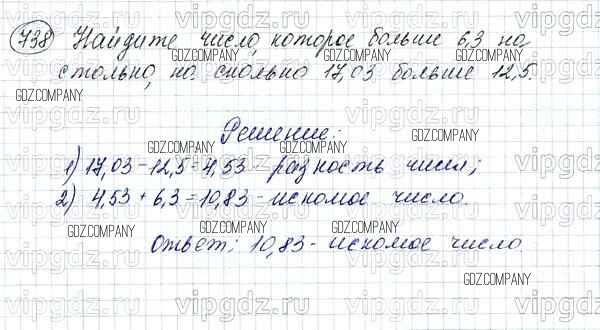 738 Найдите число, которое больше 6,3 на
столько, на сколько 17,03 больше 12,5.
Решение:
1) 17,03 - 12,5 = 4,53 - разность чисел;
2) 4,53 + 6,3 = 10,83 - искомое число.
Ответ: 10,83 - искомое число.
vipgdz.ru
GDZ.COMPANY